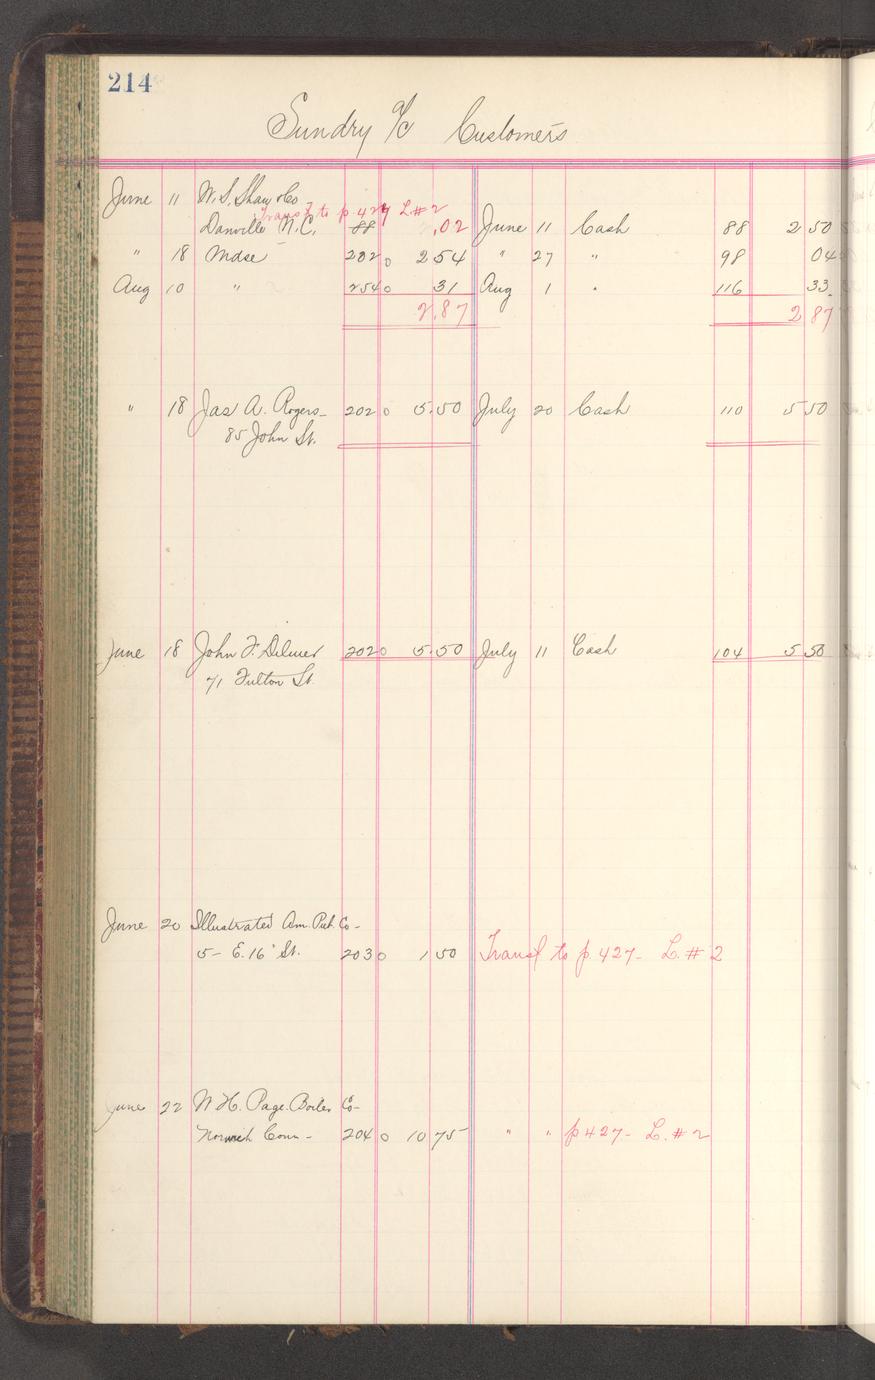 214
Sundry a/c Customers
June 11 W. S. Shaw & Co
Transf to p. 427 L. # 2
Danville N.C. 88 .02 June 11 Cash 88 2 50
" 18 Mdse 202 0 2 54 " 27 " 98 04
Aug 10 " 254 0 31 Aug 1 " 116 33
2.87 2 87
" 18 Jas A. Rogers 202 0 5.50 July 20 Cash 110 5 50
85 John St.
June 18 John F. 202 0 5.50 July 11 Cash 104 5 50
71 Fulton St.
June 20 Illustrated Am. Pub. Co
5 - E. 16" St. 203 0 1 50 Transf to p. 427 - L. # 2
June 22 W. H. Page Boiler Co
Norwich Conn - 204 0 10 75 " " p 427 - L. # 2